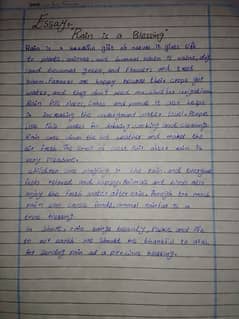 Essay.
"Rain is a Blessing"
Rain is a beautiful gift of nature. It gives life
to plants, animals, and human. when it rains, dry
land becomes green and flowers and trees
bloom. Farmers are happy because their crops get
water, and they don't need machines
Rain fills rivers, lakes and ponds it also helps
in increasing the underground water level. People
use this water for drinking, cooking and cleaning.
Rain also cools the hot weather and makes the
air fresh. The smell of after rain is
very pleasant.
children love playing in the rain and everyone
feels relaxed and Animals and birds also
enjoy the fresh water after rain. though too much
rain can cause floods, normal rainfall is a
true blessing.
In short, rain brings beauty, and life
to our earth. we should be thankful to Allah
for sending rain as a precious blessing.